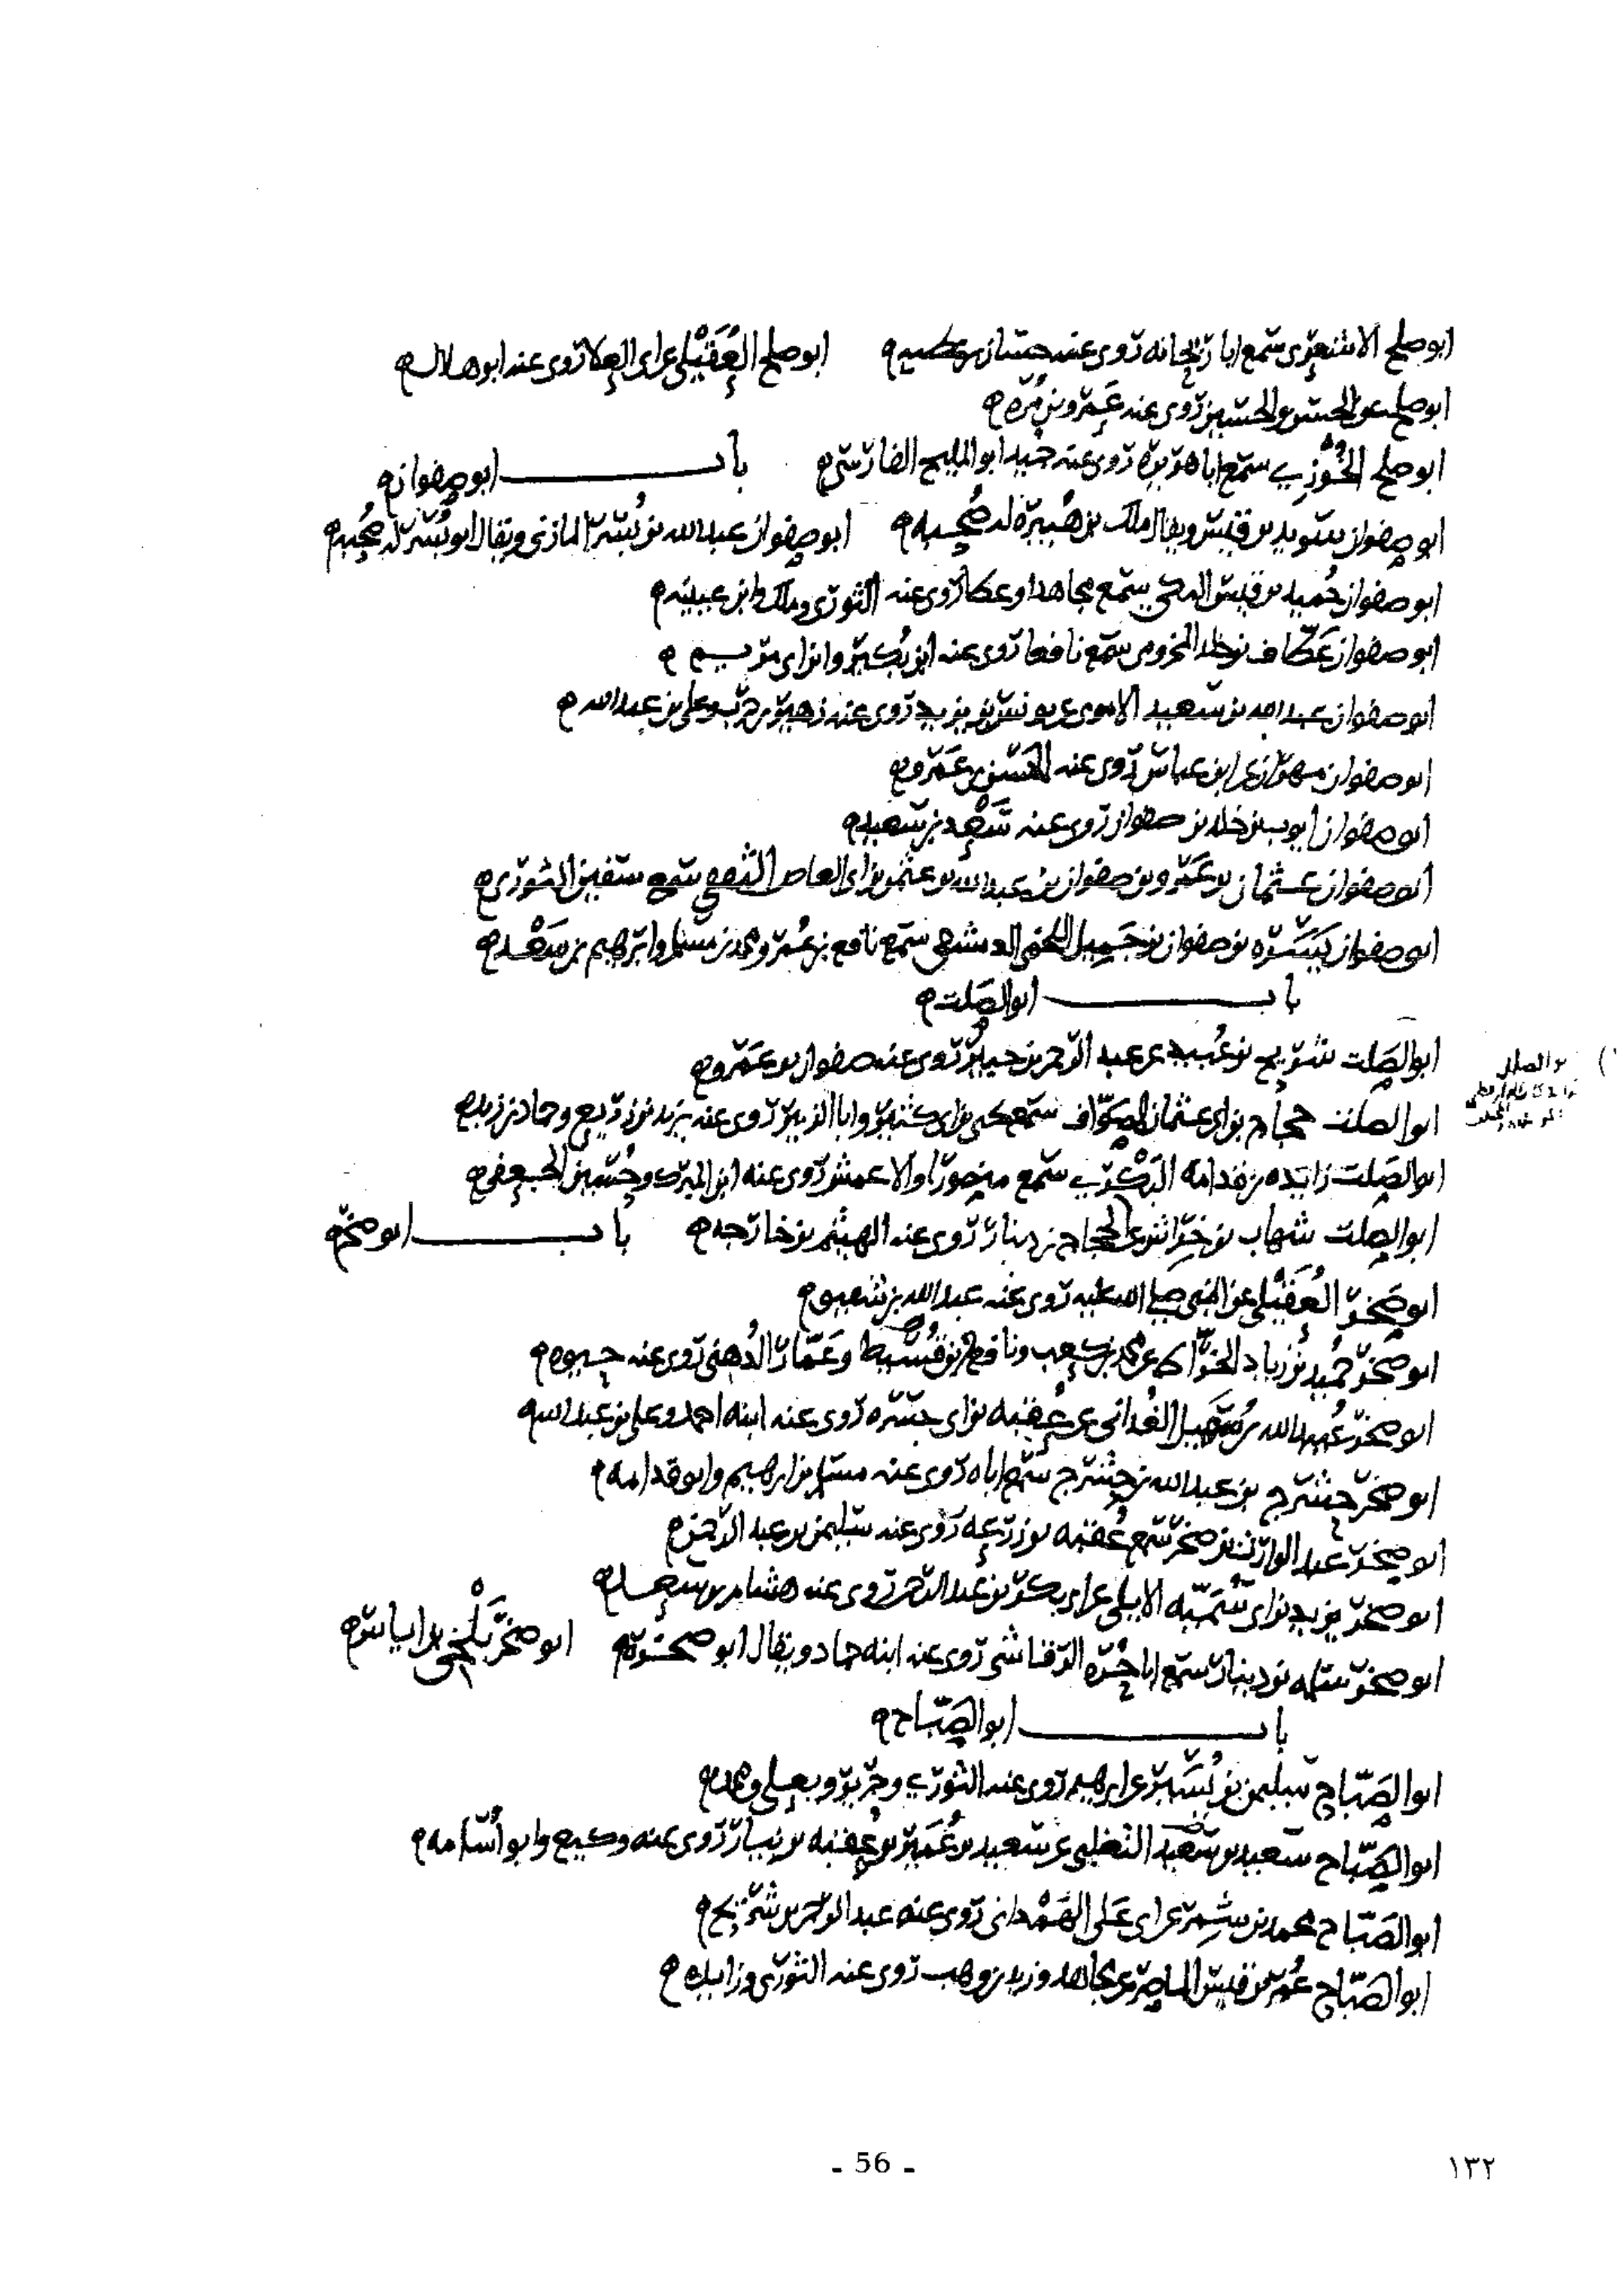 ابو صلح الاشعري سمع ابا ريحانه روى عنه حسان بن عطيه ابو صلح العقيلي عن ابي العلا روى عنه ابو هلال
ابو صلح عن الحسن والحسين روى عنه عمرو بن مره
ابو صلح الخوزي سمع ابا هريره روى عنه حميد ابو المليح الفارسي باب ابو صفوان
ابو صفوان سويد بن قيس ويقال ملك بن عميره له صحبه ابو صفوان عبد الله بن بسر المازني ويقال ابو بسر له صحبه
ابو صفوان حميد بن قيس المكي سمع مجاهدا وعطا روى عنه الثوري وملك وابن عيينه
ابو صفوان عطاف بن خلد المخزومي سمع نافعا روى عنه ابن بكير وابن ابي مريم
ابو صفوان عبد الله بن سعيد الاموي عن يونس بن يزيد روى عنه زهير بن حرب وعلي بن عبد الله
ابو صفوان مهران عن ابن عباس روى عنه الحسن بن عمرو
ابو صفوان ايوب بن خلد بن صفوان روى عنه سعد بن سعيد
ابو صفوان عثمان بن عمرو بن صفوان بن عبد الله بن عثمن بن ابي العاص الثقفي سمع سفين الثوري
ابو صفوان يسره بن صفوان بن جميل اللخمي الدمشقي سمع نافع بن عمر ومحمد بن مسلم وابرهيم بن سعد
باب ابو الصلت
ابو الصلت شريح بن عبيد عن عبد الرحمن بن جبير روى عنه صفوان بن عمرو
ابو الصلت حجاج بن ابي عثمان الصواف سمع يحيى بن ابي كثير وابا الزبير روى عنه يزيد بن زريع وحماد بن زيد
ابو الصلت زايده بن قدامه البكري سمع منصورا والاعمش روى عنه ابن المبرك وحسين الجعفي
ابو الصلت شهاب بن خراش عن الحجاج بن دينار روى عنه الهيثم بن خارجه باب ابو صخر
ابو صخر العقيلي عن النبي صلى الله عليه روى عنه عبد الله بن شقيق
ابو صخر حميد بن زياد الخراط عن محمد بن كعب ونافع وابن قسيط وعمار الدهني روى عنه حيوه
ابو صخر عبد الله بن الغداني عن عقبه بن ابي جسره روى عنه ابنه احمد وعلي بن عبد الله
ابو صخر حشرج بن عبد الله بن حشرج سمع اباه روى عنه مسلم بن ابرهيم وابو قدامه
ابو صخر عبد الوارث بن صخر سمع عقبه بن زرعه روى عنه سليمن بن عبد الرحمن
ابو صخر يزيد بن ابي سميه الايلي عن ابي بكر بن عبد الرحمن روى عنه هشام بن سعد
ابو صخر سلمه بن دينار سمع ابا حره الرقاشي روى عنه ابنه حماد ويقال ابو صخره ابو صخر بلخي
باب ابو الصباح
ابو الصباح سليمن بن يسير عن ابرهيم روى عنه الثوري وجرير ويعلى ومحمد
ابو الصباح سعيد بن سعيد التغلبي عن سعيد بن عمير بن عقبه بن نيار روى عنه وكيع وابو اسامه
ابو الصباح محمد بن شمر عن ابي علي الهمداني روى عنه عبد الرحمن بن شريح
ابو الصباح عمر بن قيس الماصر عن مجاهد وزيد بن وهب روى عنه الثوري وزايده
- 56 -
١٣٢